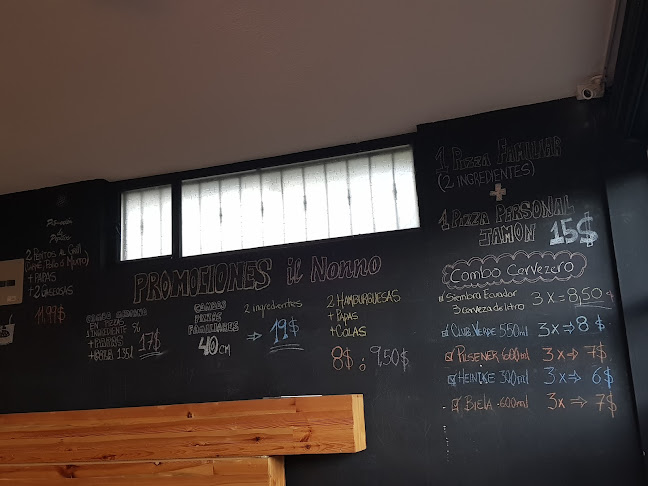 PROMOCIONES il Nonno
2 Platos de Grill
+ PAPAS
+ 2 BEBIDAS
11.99$
COMBO
EN PIZZAS
INGREDIENTE
+ PAPAS
+ COLA 1.35 l
17$
COMBOS
PIZZAS
FAMILIARES
40 CM
2 ingredientes
19$
2 HAMBURGUESAS
+ PAPAS
+ COLAS
8$ ó 9,50$
1 PIZZA FAMILIAR
(2 INGREDIENTES)
+
1 PIZZA PERSONAL
JAMON 15$
Combo Cervezero
Siembra Ecuador
3 cerveza de litro
3 x = 8,50
CLUB VERDE 550ml 3x⇒ 8$
PILSENER 600ml 3x⇒ 7$
HEINIKE 300ml 3x⇒ 6$
BIELA - 600ml 3x⇒ 7$